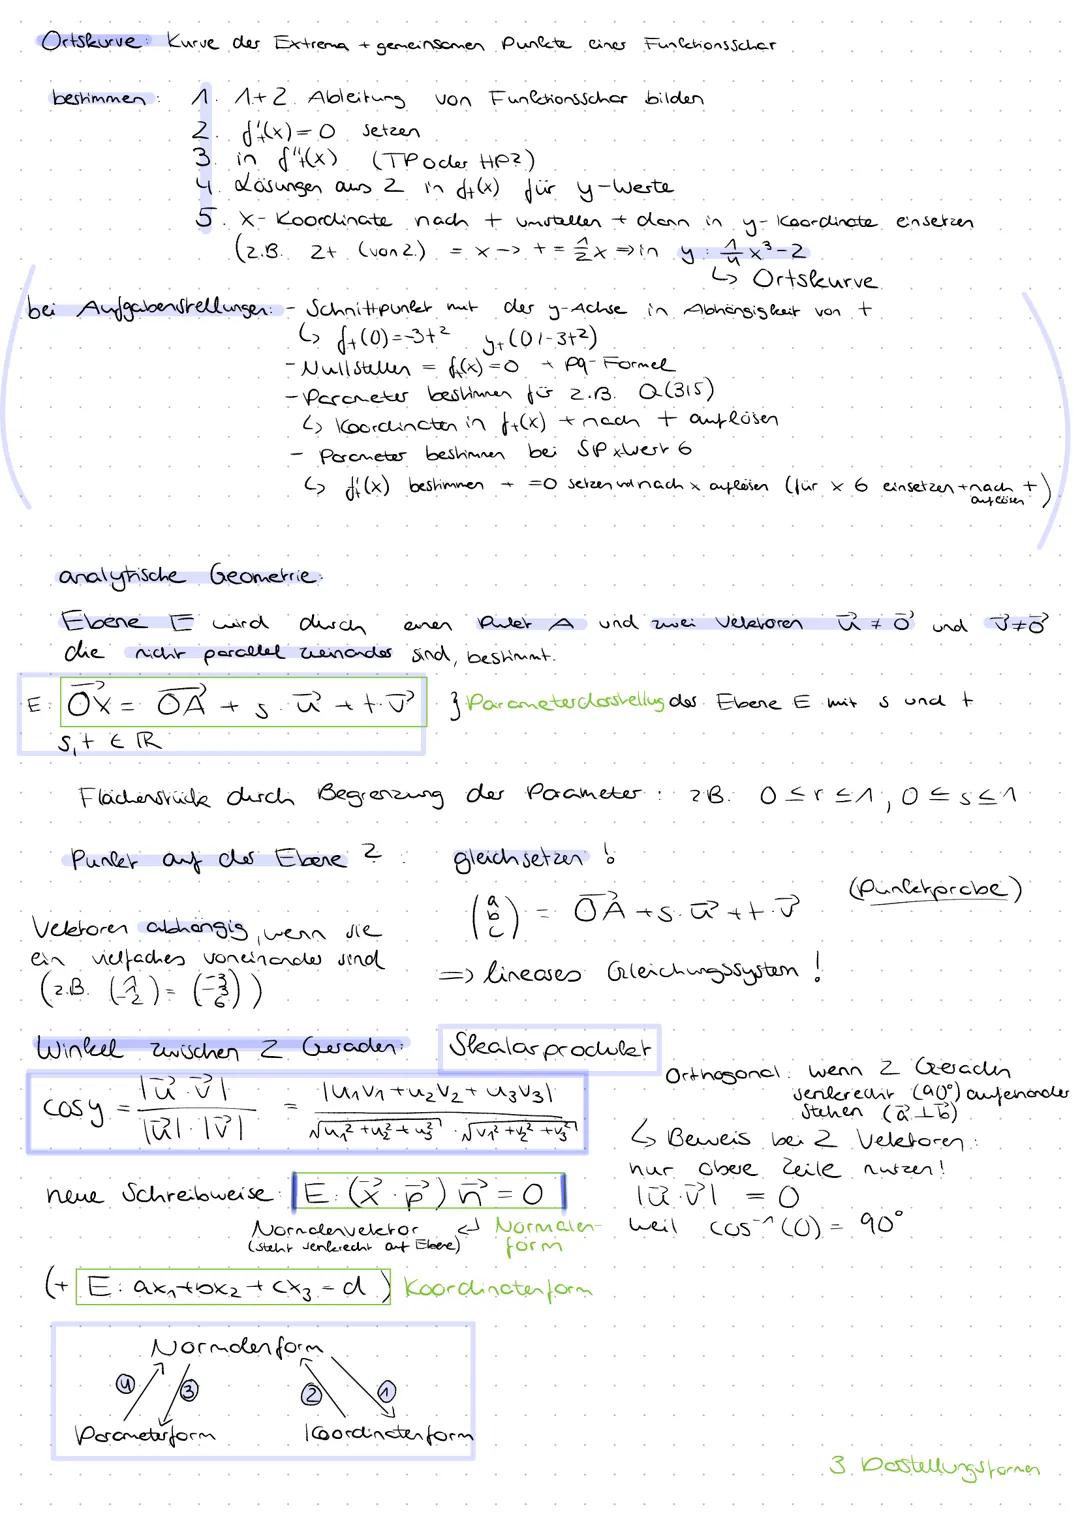 Ortskurve: Kurve der Extrema + gemeinsamen Punkte einer Funktionsschar
bestimmen: 1. 1+2 Ableitung von Funktionsschar bilden
2. f't(x) = 0 setzen
3. in f''t(x) (TP oder HP?)
4. Lösungen aus 2 in ft(x) für y-Werte
5. x-Koordinate nach t umstellen + dann in y-Koordinate einsetzen
(z.B. 2t (von 2.) = x -> t = 1/2 x => in y: 1/4 x³ - 2
↳ Ortskurve
bei Aufgabenstellungen: - Schnittpunkt mit der y-Achse in Abhängigkeit von t
↳ ft(0) = -3t² yt(0|-3t²)
- Nullstellen = ft(x) = 0 + pq-Formel
- Parameter bestimmen für z.B. Q(3|5)
↳ Koordinaten in ft(x) + nach t auflösen
- Parameter bestimmen bei SP x-Wert 6
↳ f't(x) bestimmen + =0 setzen und nach x auflösen (für x 6 einsetzen + nach t auflösen)
analytische Geometrie:
Ebene E wird durch einen Punkt A und zwei Vektoren u⃗ ≠ 0⃗ und v⃗ ≠ 0⃗
die nicht parallel zueinander sind, bestimmt.
E: OX⃗ = OA⃗ + s · u⃗ + t · v⃗ } Parameterdarstellung der Ebene E mit s und t
s, t ∈ ℝ
Flächenstücke durch Begrenzung der Parameter: z.B. 0 ≤ r ≤ 1, 0 ≤ s ≤ 1
Punkt auf der Ebene? gleichsetzen!
(a b c) = OA⃗ + s · u⃗ + t · v⃗ (Punktprobe)
=> lineares Gleichungssystem!
Vektoren abhängig, wenn sie
ein vielfaches voneinander sind
Winkel zwischen 2 Geraden: Skalarprodukt
cos γ = |u⃗ · v⃗| / |u⃗| · |v⃗| = |u₁v₁ + u₂v₂ + u₃v₃| / √u₁² + u₂² + u₃² · √v₁² + v₂² + v₃²
Orthogonal: wenn 2 Geraden
senkrecht (90°) aufeinander
stehen (a⃗ ⊥ b⃗)
↳ Beweis bei 2 Vektoren:
nur obere Zeile nutzen!
|u⃗ · v⃗| = 0
weil cos⁻¹(0) = 90°
neue Schreibweise: E: (x⃗ · p⃗) n⃗ = 0
Normalenvektor ↲ Normalenform
(steht senkrecht auf Ebene)
(+ E: ax₁ + bx₂ + cx₃ = d) Koordinatenform
Normalenform
4 3 2 1
Parameterform Koordinatenform
3 Darstellungsformen